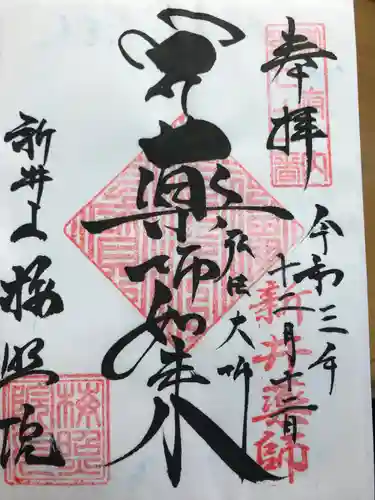 奉拝
令和三年
十二月十二日
新井薬師
薬師如来
弘法大師
新井山
梅照院
梅照院